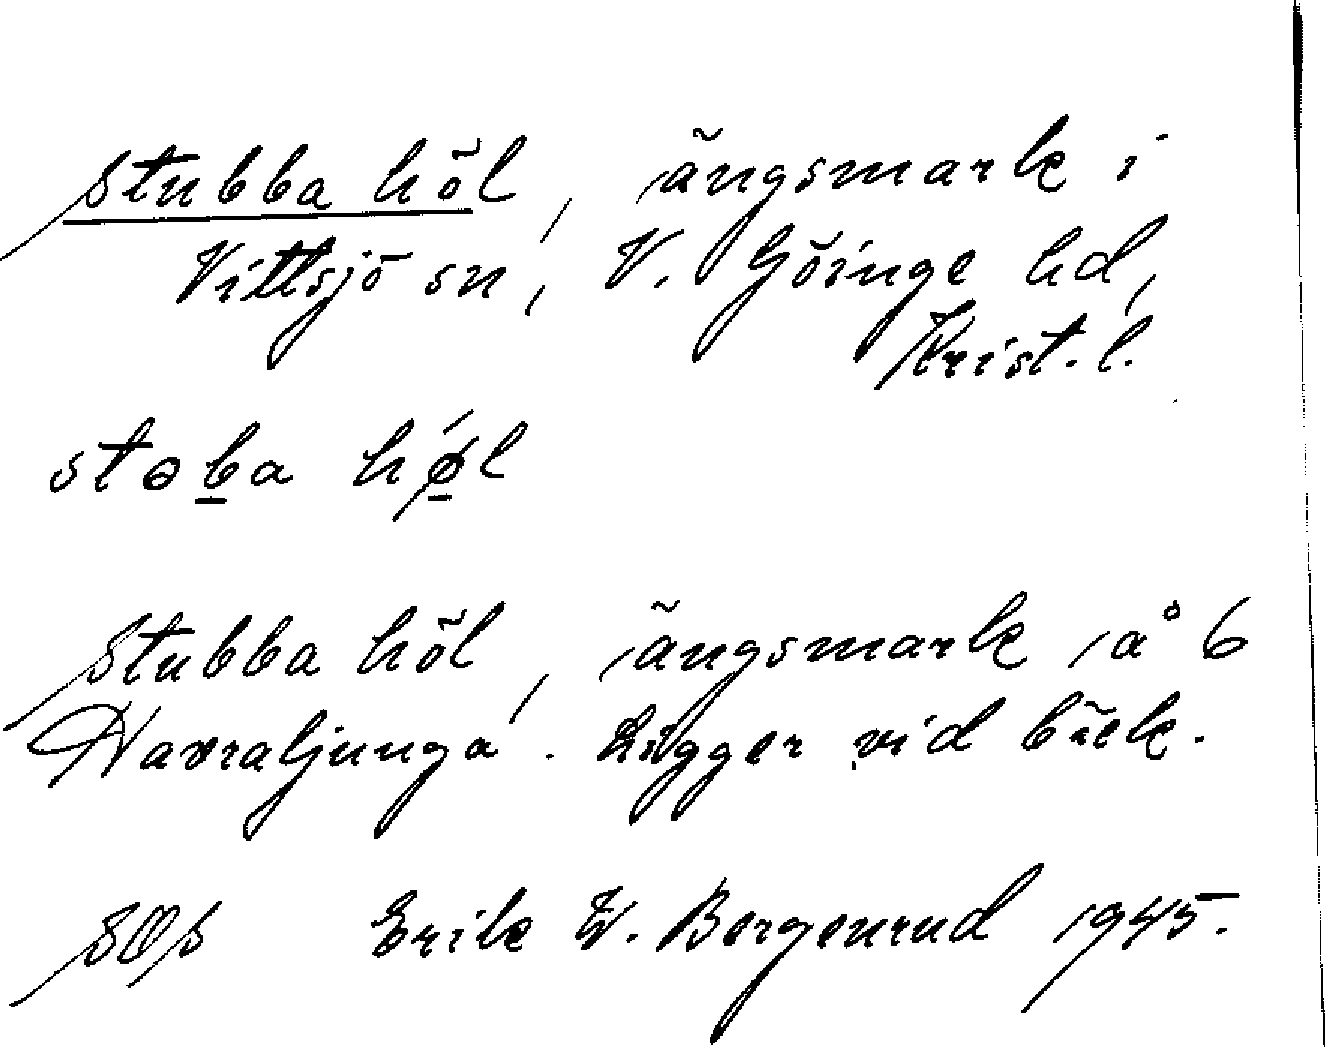 Stubba höl, ängsmark i
Vittsjö sn, V. Göinge hd,
Krist. l.
stəba hǿl
Stubba höl, ängsmark å 6
Havraljunga. Ligger vid bäck.
SOS Erik W. Bergenrud 1945.